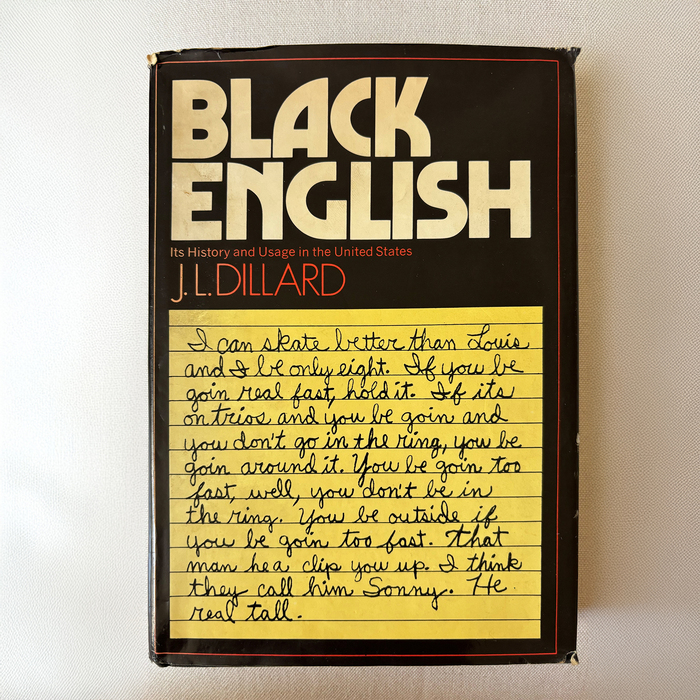 BLACK
ENGLISH
Its History and Usage in the United States
J.L.DILLARD
I can skate better than Louis
and I be only eight. If you be
goin real fast, hold it. If its
on trios and you be goin and
you don't go in the ring, you be
goin around it. You be goin too
fast, well, you don't be in
the ring. You be outside if
you be goin too fast. That
man he a clip you up. I think
they call him Sonny. He
real tall.